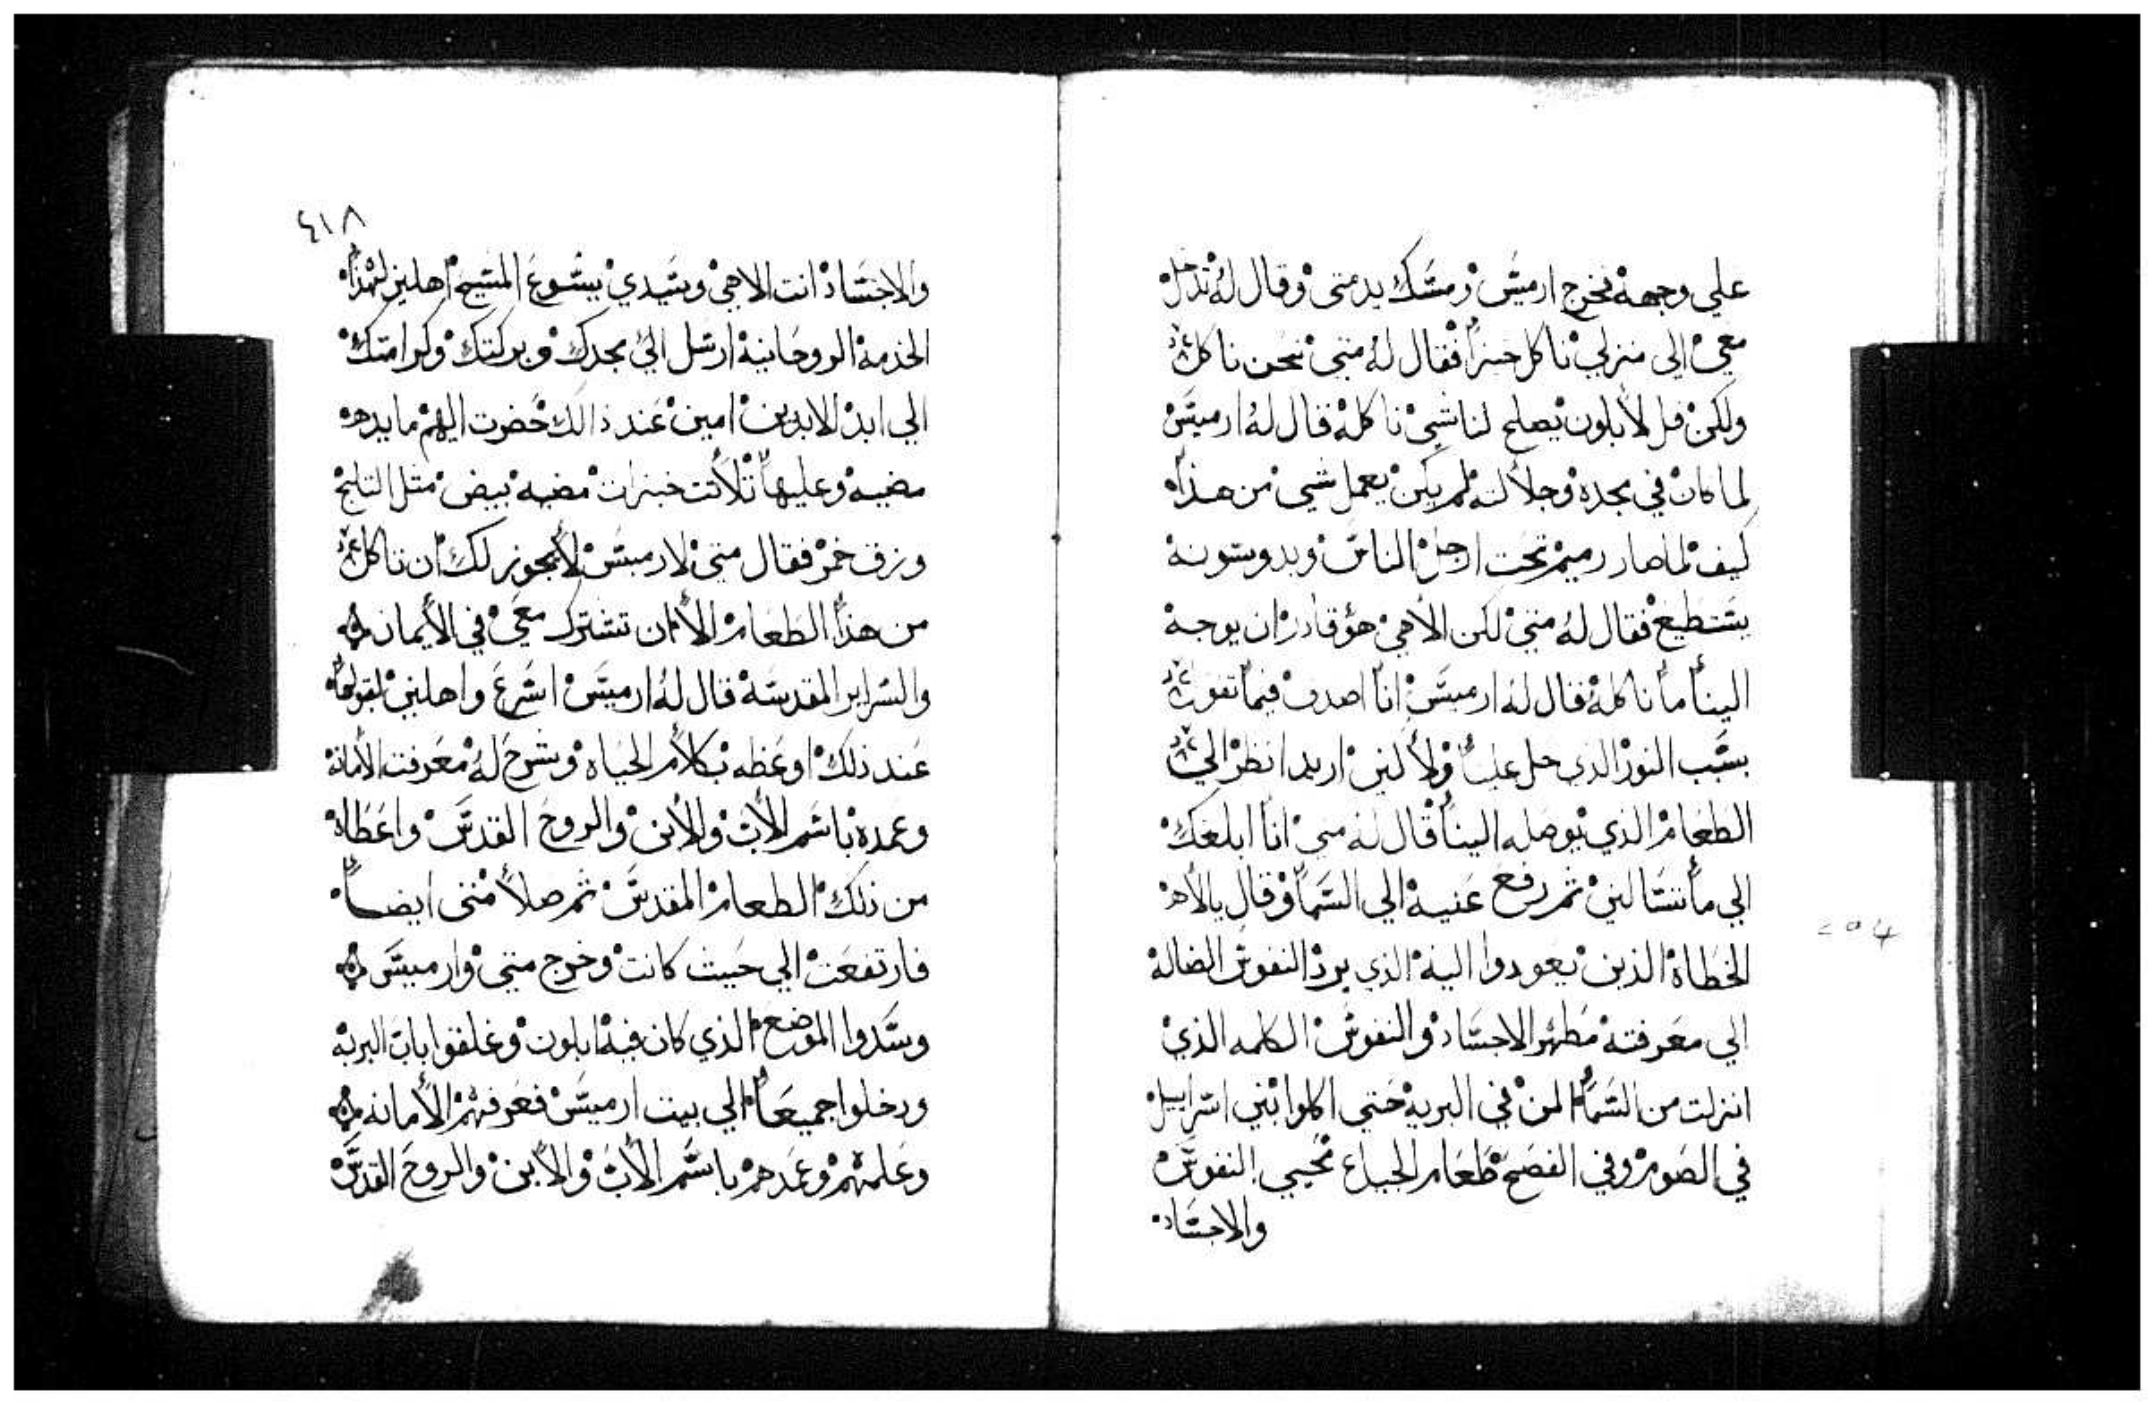 علي وجهه فخرج ارميس ومسك يد متى وقال له تدخل
معي الي منزلي ناكل خبزاً فقال له متى نحن ناكل
ولكن قل لابلون يصلح لنا شي ناكله قال له ارميس
لما كان في مجده وجلاله لم يكن يعمل شي من هذا
كيف لما صار رميم تحت ارجل الناس ويدوسونه
يستطيع فقال له متى لكن الاهي هو قادر ان يوجه
الينا ما ناكله قال له ارميس انا اصدق فيما تقول
بسبب النور الذي حل علينا ولاكنن اريد انظر الي
الطعام الذي يوصله الينا قال له متى انا ابلغك
الي ما تسالني ثم رفع عنيه الي السما وقال يالاه
الخطاه الذين يعودوا اليه الذي يرد النفوس الضاله
الي معرفته مطهر الاجساد والنفوس الكلمه الذي
انزلت من السما المن في البريه حتي اكلوا بني اسراييل
في الصوم وفي الفصح طعام الجياع محيي النفوس
والاجساد
٤١٨
والاجساد انت الاهي وسيدي يسوع المسيح اهلني لهذا
الخدمه الروحانيه ارسل الي مجدك وبركتك وكرامتك
الي ابد الابدين امين عند ذالك حضرت اليهم مايده
مضيه وعليها تلاتت خبزات مضيه بيض متل التلج
وزق خمر فقال متى لارميس لا يجوز لك ان تاكل
من هذا الطعام الا ان تشترك معي في الايمان
والسراير المقدسه قال له ارميس اسرع واهلني لقولها
عند ذلك اوعظه بكلام الحياه وشرح له معرفت الامانه
وعمده باسم الاب والابن والروح القدس واعطاه
من ذلك الطعام المقدس ثم صلا متى ايضا
فارتفعت الي حيث كانت وخرج متى وارميس
وسدوا الموضع الذي كان فيه ابلون وغلقوا باب البربه
ودخلوا جميعا الي بيت ارميس فعرفهم الامانه
وعلمهم وعمدهم باسم الاب والابن والروح القدس